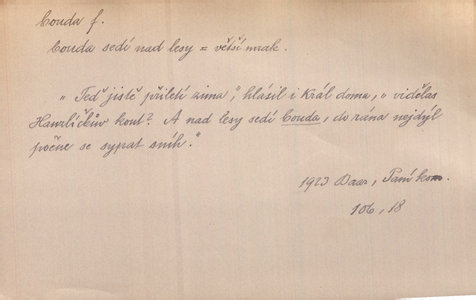 Couda f.
Couda sedí nad lesy = větší mrak.
„Teď jistě přiletí zima“, hlásil i Král doma, „vidělas
Havrlíčkův kout? A nad lesy sedí Couda, do rána nejdýl
počne se sypat sníh.“
1923 Baar, Paní kom.
106, 18